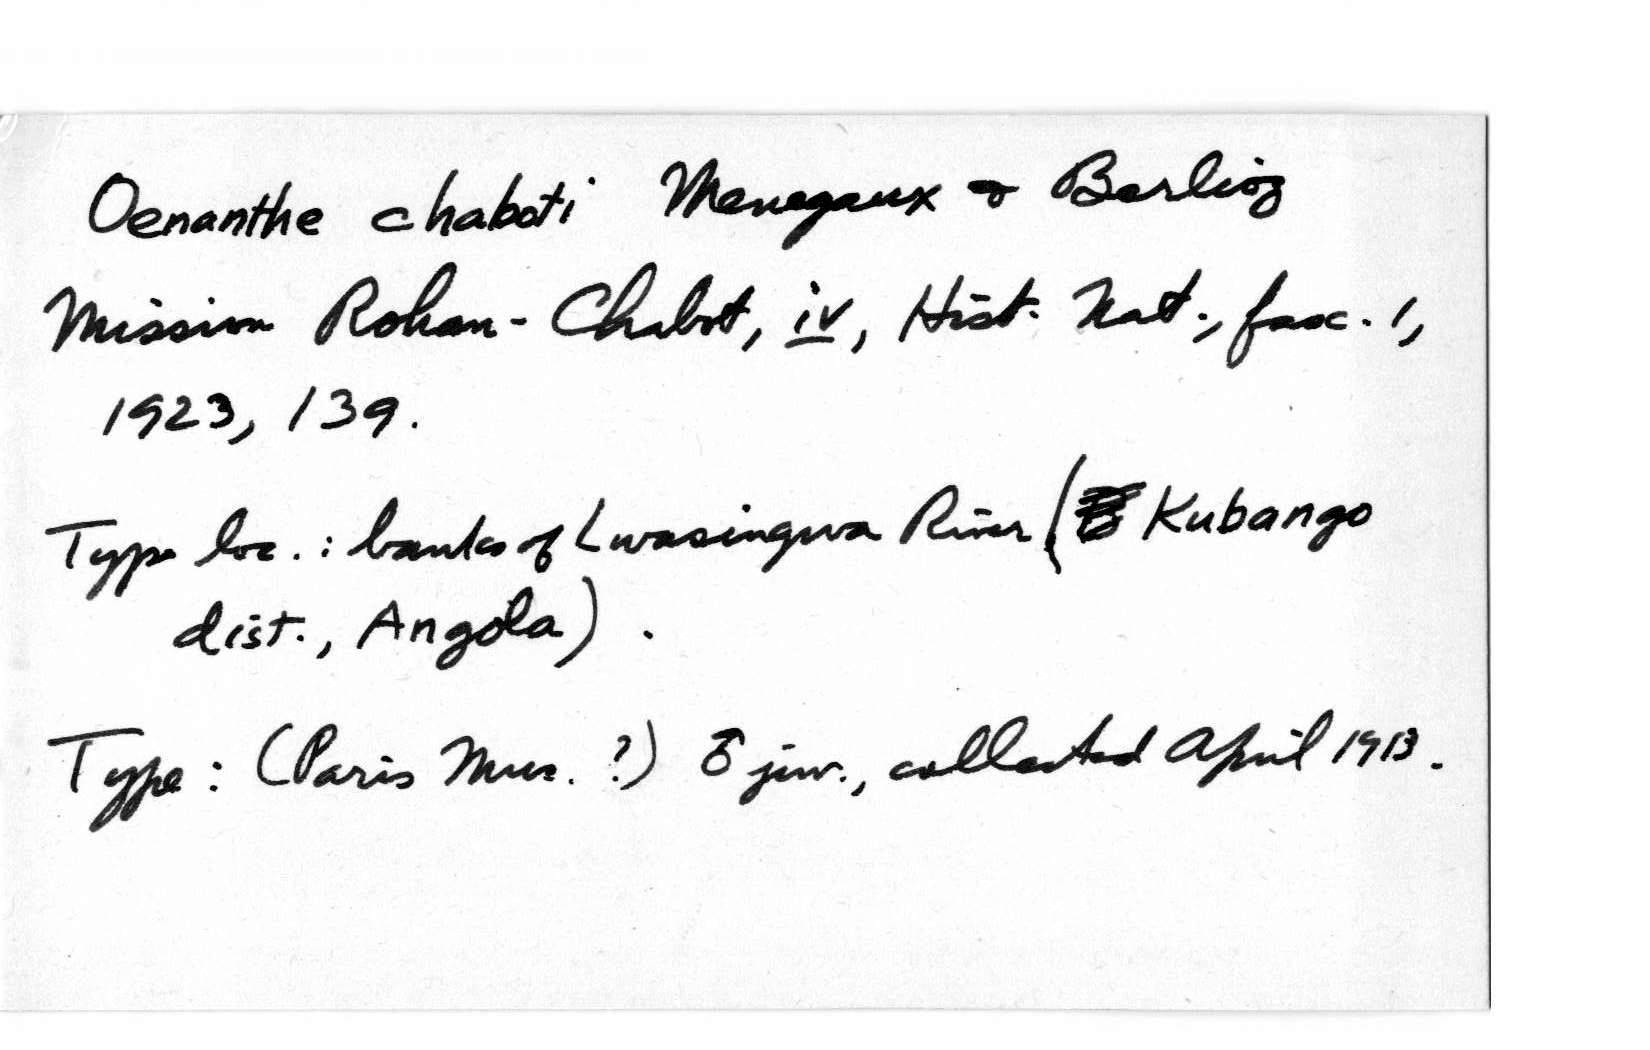 Oenanthe chaboti Menegaux & Berlioz
Mission Rohan-Chabot, iv, Hist. Nat., fasc. 1,
1923, 139.
Type loc.: banks of Lwasingwa River (Kubango
dist., Angola).
Type: (Paris Mus. ?) ♂ juv., collected April 1913.